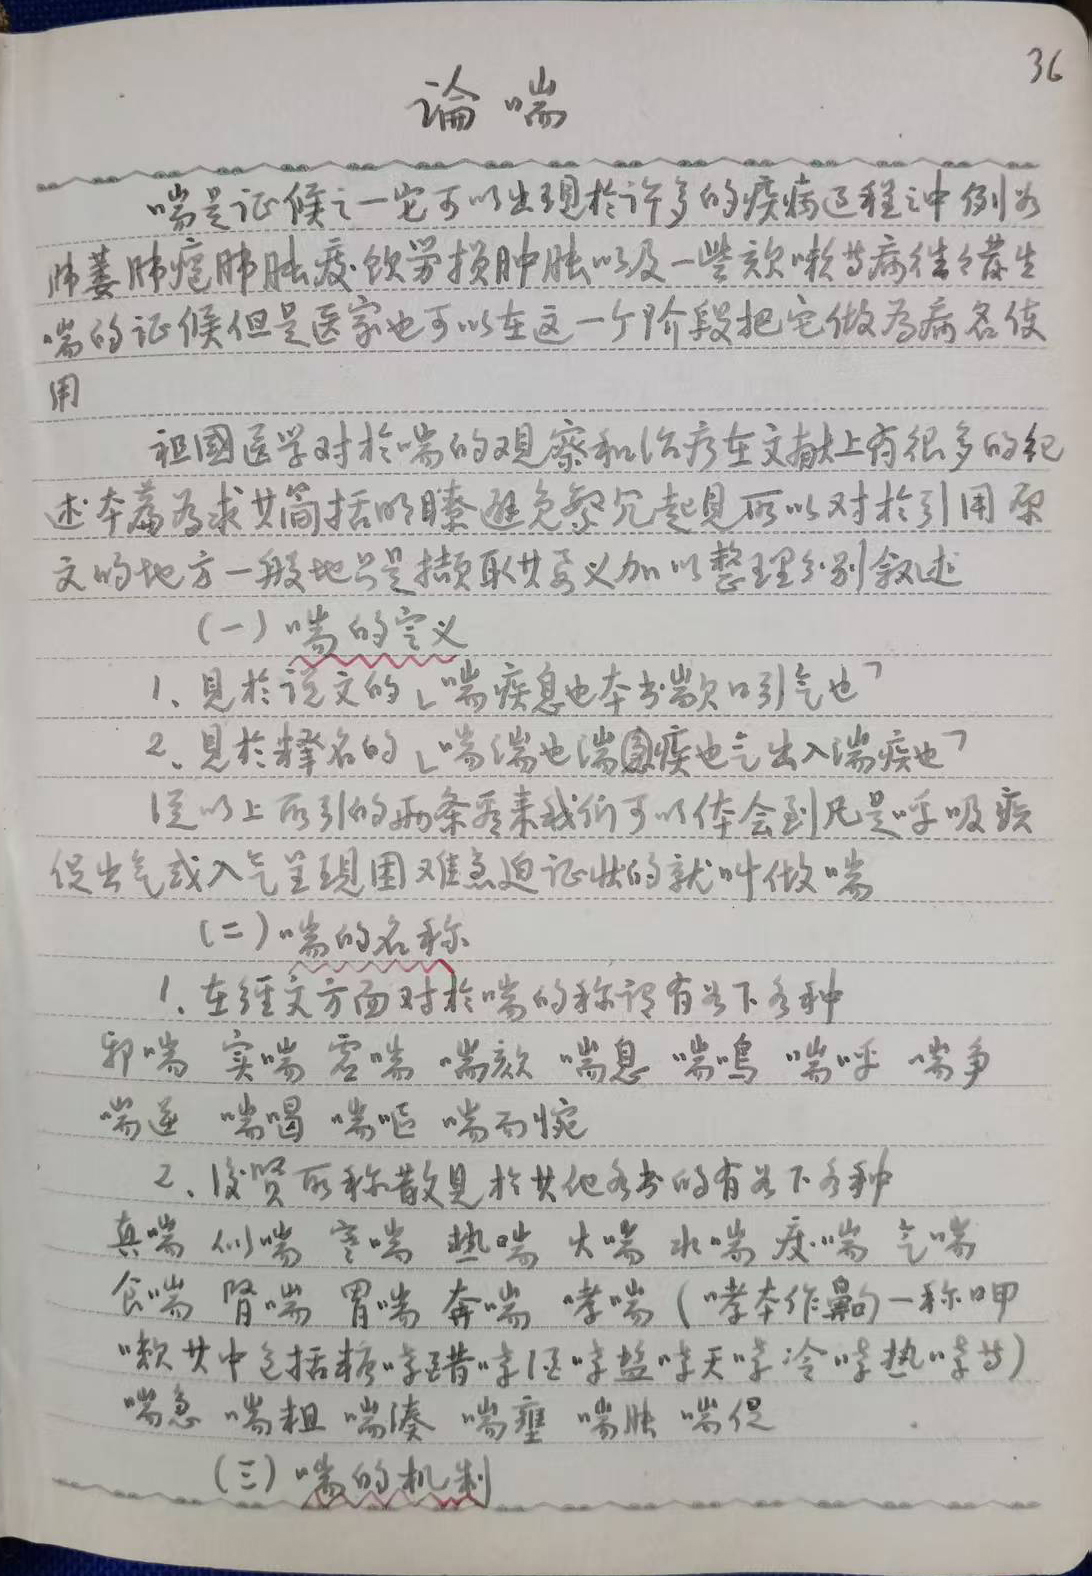 36
论喘
喘是证候之一它可以出现於许多的疾病过程之中例如
肺萎肺痈肺胀痰饮劳损肿胀以及一些咳嗽等病往往发生
喘的证候但是医家也可以在这一个阶段把它做为病名使
用
祖國医学对於喘的观察和治疗在文献上有很多的纪
述本篇为求其简括明瞭避免繁冗起見所以对於引用原
文的地方一般地只是撷取其要义加以整理分别叙述
(一)喘的定义
1、見於说文的「喘疾息也本书歂口引气也」
2、見於释名的「喘湍也湍疾也气出入湍疾也」
従以上所引的两条看来我们可以体会到凡是呼吸疾
促出气或入气呈現困难急迫证状的就叫做喘
(二)喘的名称
1、在经文方面对於喘的称谓有如下各种
邪喘 实喘 虚喘 喘咳 喘息 喘鳴 喘呼 喘争
喘逆 喘喝 喘呕 喘而惋
2、後贤所称散見於其他各书的有如下各种
真喘 似喘 寒喘 热喘 火喘 水喘 痰喘 气喘
食喘 肾喘 胃喘 奔喘 哮喘(哮本作齁一称呷
嗽其中包括糖哮醋哮酒哮盐哮天哮冷哮热哮等)
喘急 喘粗 喘凑 喘壅 喘胀 喘促
(三)喘的机制